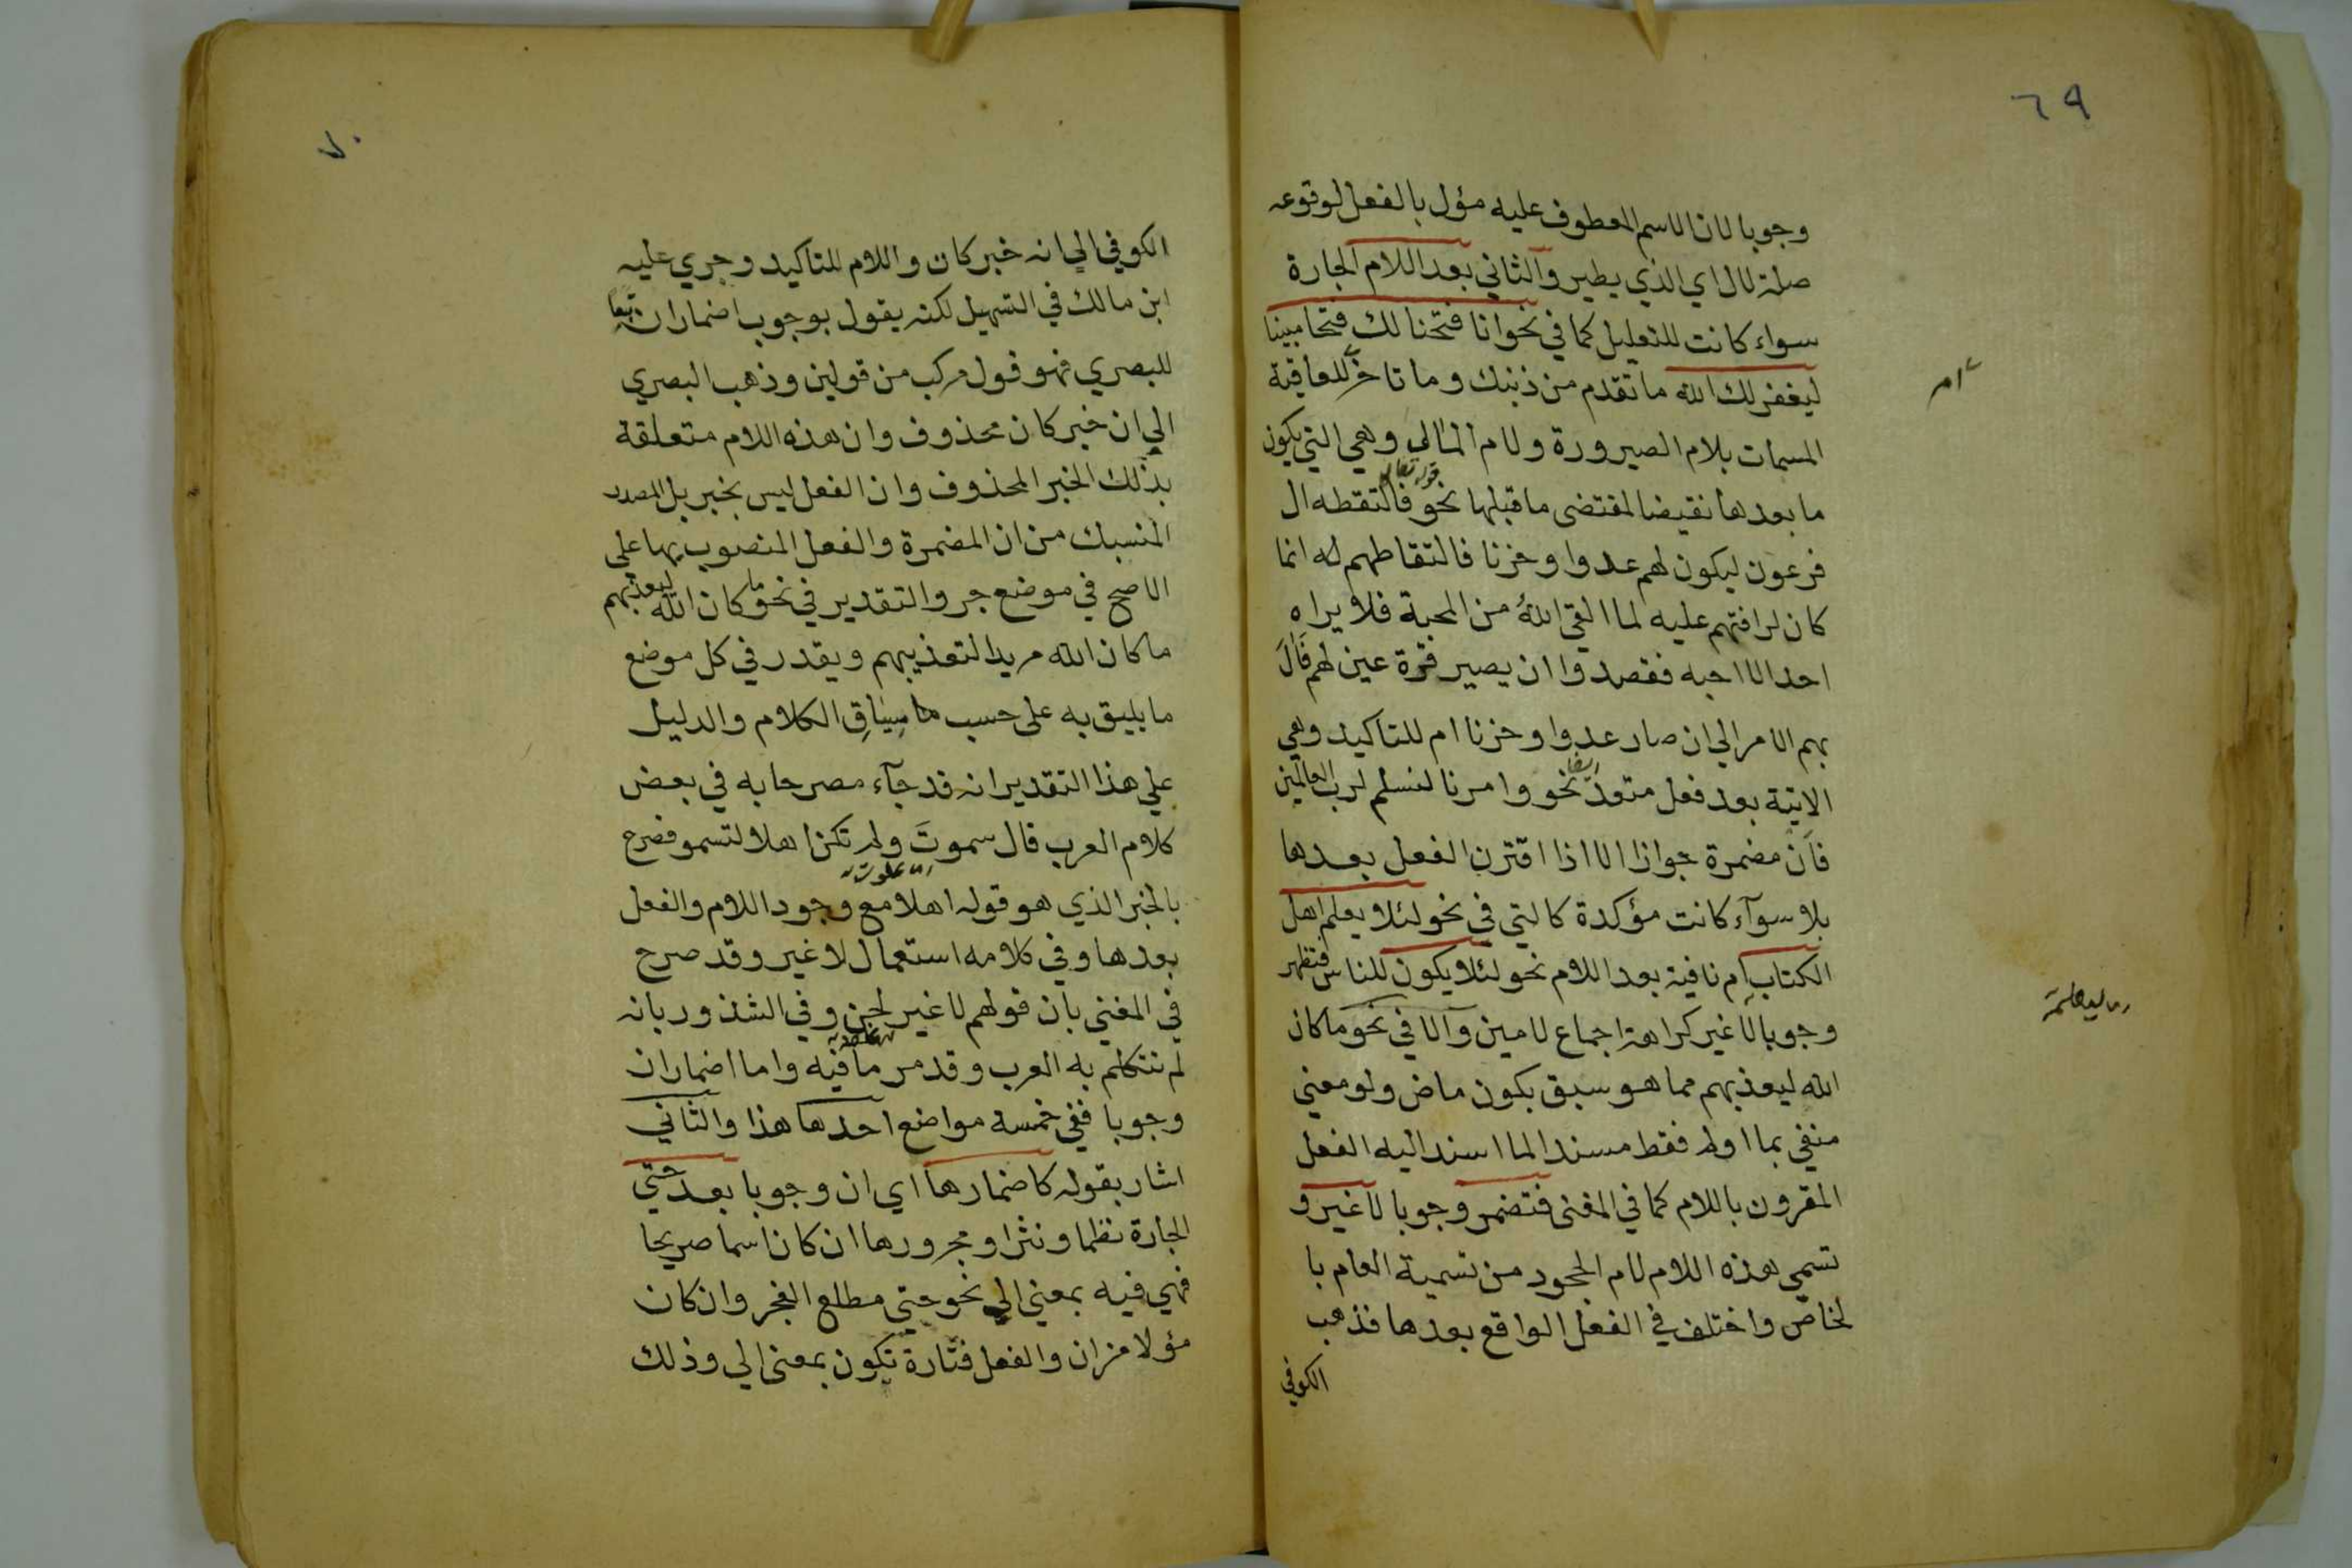 ٦٩
وجوبا لان الاسم المعطوف عليه مؤل بالفعل لوقوعه
صلة لال اي الذي يطير والثاني بعد اللام الجارة
سواء كانت للتعليل كما في نحو انا فتحنا لك فتحا مبينا
ليغفر لك الله ما تقدم من ذنبك وما تاخر للعاقبة
المسمات بلام الصيرورة ولام المالي وهي التي يكون
ما بعدها نقيضا لمقتضى ما قبلها نحو قوله تعالى فالتقطه ال
فرعون ليكون لهم عدوا وحزنا فالتقاطهم له انما
كان لرافتهم عليه لما القى الله من المحبة فلا يراه
احد الا احبه فقصدوا ان يصير قرة عين لهم فال
بهم الامر الي ان صار عدوا وحزنا ام للتاكيد وهي
الاتية بعد فعل متعد نحو وامرنا لنسلم لرب العالمين
فان مضمرة جوازا الا اذا اقترن الفعل بعدها
بلا سوآء كانت مؤكدة كالتي في نحو لئلا يعلم اهل
الكتاب ام نافية بعد اللام نحو لئلا يكون للناس فتظهر
وجوبا لا غير كراهة اجماع لامين والا في نحو ما كان
الله ليعذبهم مما هو سبق بكون ماض ولو معني
منفي بما او لم فقط مسندا لما اسند اليه الفعل
المقرون باللام كما في المغنى فتضمر وجوبا لا غير و
تسمي هذه اللام لام الجحود من تسمية العام با
لخاص واختلف في الفعل الواقع بعدها فذهب
الكوفي
٧٠
الكوفي الي انه خبر كان واللام للتاكيد وجري عليه
ابن مالك في التسهيل لكنه يقول بوجوب اضمار ان تبعا
للبصري فهو قول مركب من قولين وذهب البصري
الي ان خبر كان محذوف وان هذه اللام متعلقة
بذلك الخبر المحذوف وان الفعل ليس بخبر بل المصدر
المنسبك من ان المضمرة والفعل المنصوب بها علي
الاصح في موضع جر والتقدير في نحو ما كان الله ليعذبهم
ما كان الله مريدا لتعذيبهم ويقدر في كل موضع
ما يليق به على حسب سياق الكلام والدليل
علي هذا التقدير انه قد جآء مصرحا به في بعض
كلام العرب قال سموت ولم تكن اهلا لتسمو فصرح
بالخبر الذي هو قوله اهلا مع وجود اللام والفعل
بعدها وفي كلامه استعمال لا غير وقد صرح
في المغني بان قولهم لا غير لحن وفي الشذور بانه
لم تتكلم به العرب وقد مر ما فيه واما اضمار ان
وجوبا ففي خمسة مواضع احدها هذا والثاني
اشار بقوله كاضمارها اي ان وجوبا بعد حتي
الجارة نظما ونثرا ومجرورها ان كان اسما صريحا
فهي فيه بمعني الي نحو حتي مطلع الفجر وان كان
مؤلا من ان والفعل فتارة تكون بمعنى الي وذلك